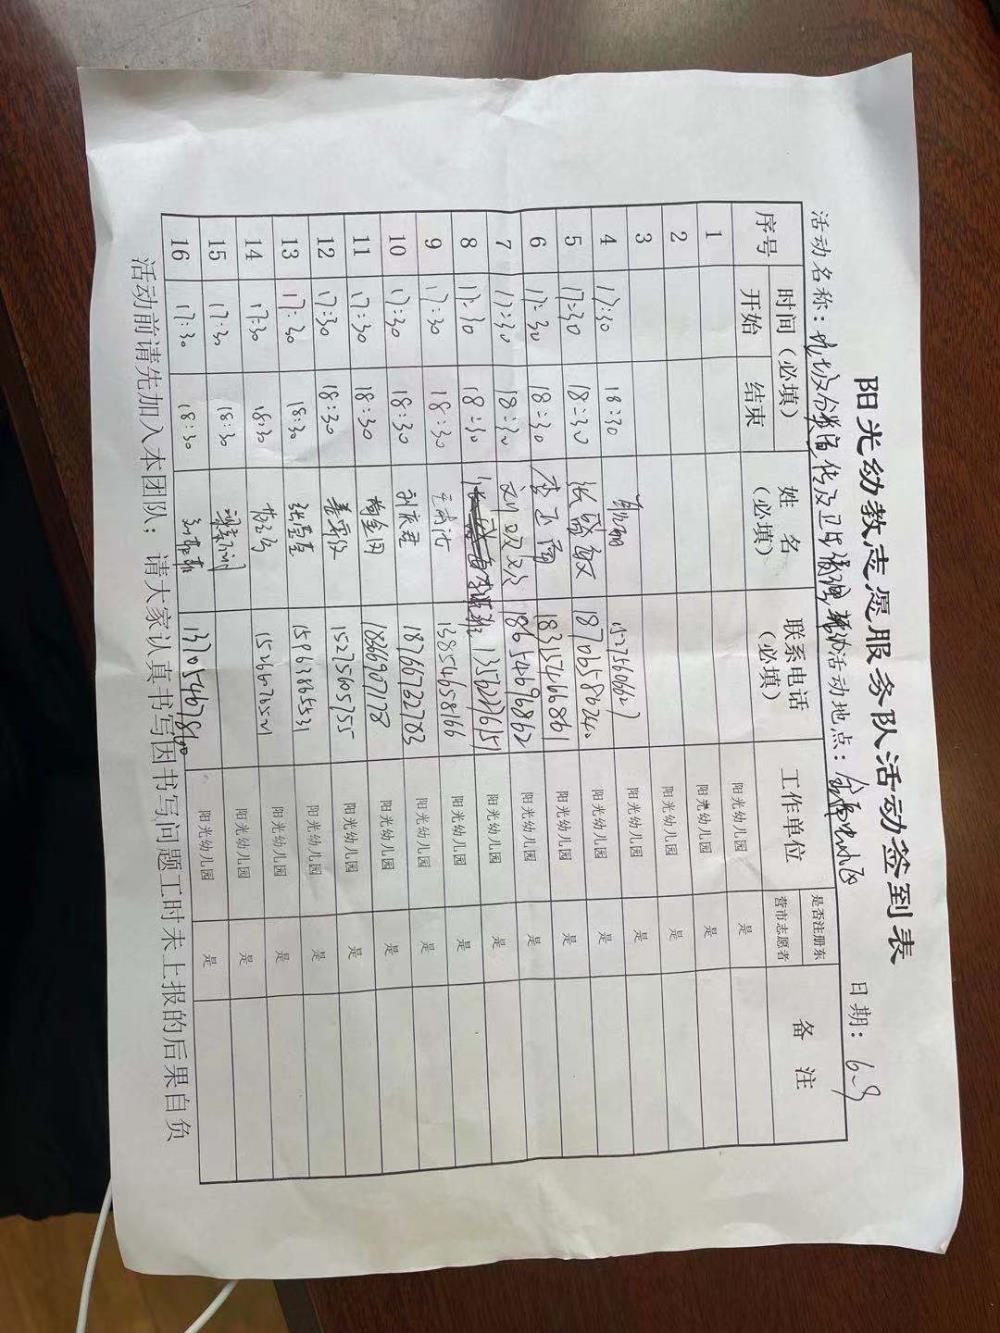 阳光幼教志愿服务队活动签到表
活动名称：垃圾分类宣传及卫生清理 活动地点： 小区 日期：6.9
序号 时间（必填） 开始 结束 姓名（必填） 联系电话（必填） 工作单位 是否注册东营市志愿者 备注
1 阳光幼儿园 是
2 阳光幼儿园 是
3 阳光幼儿园 是
4 17:30 18:30 阳光幼儿园 是
5 17:30 18:30 张盛敏 阳光幼儿园 是
6 17:30 18:30 李玉霞 18315466861 阳光幼儿园 是
7 17:30 18:30 刘双双 18654696862 阳光幼儿园 是
8 17:30 18:30 阳光幼儿园 是
9 17:30 18:30 13854658166 阳光幼儿园 是
10 17:30 18:30 18766722783 阳光幼儿园 是
11 17:30 18:30 尚金田 18866907178 阳光幼儿园 是
12 17:30 18:30 15275605755 阳光幼儿园 是
13 17:30 18:30 张莹莹 15967865531 阳光幼儿园 是
14 17:30 18:30 阳光幼儿园 是
15 17:30 18:30 阳光幼儿园 是
16 17:30 18:30 阳光幼儿园 是
活动前请先加入本团队；请大家认真书写因书写问题工时未上报的后果自负